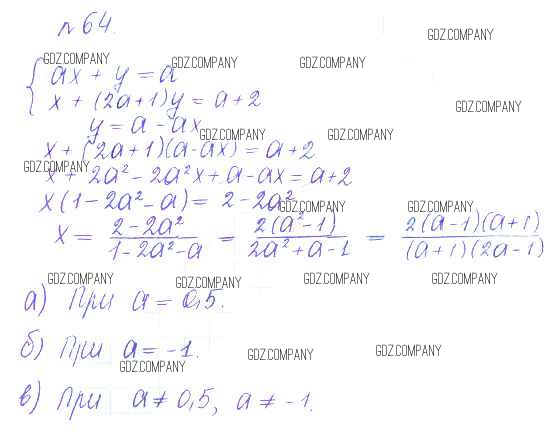 №64.
GDZ.COMPANY
GDZ.COMPANY GDZ.COMPANY GDZ.COMPANY
{ ax + y = a
x + (2a+1)y = a+2
GDZ.COMPANY
y = a - ax
GDZ.COMPANY GDZ.COMPANY
x + (2a+1)(a-ax) = a+2
GDZ.COMPANY
x + 2a² - 2a²x + a - ax = a+2
x(1-2a²-a) = 2-2a²
GDZ.COMPANY GDZ.COMPANY
x = (2-2a²)/(1-2a²-a) = 2(a²-1)/(2a²+a-1) = 2(a-1)(a+1)/((a+1)(2a-1))
GDZ.COMPANY GDZ.COMPANY GDZ.COMPANY GDZ.COMPANY
а) При a = 0,5.
б) При a = -1.
GDZ.COMPANY GDZ.COMPANY
GDZ.COMPANY
в) При a ≠ 0,5, a ≠ -1.